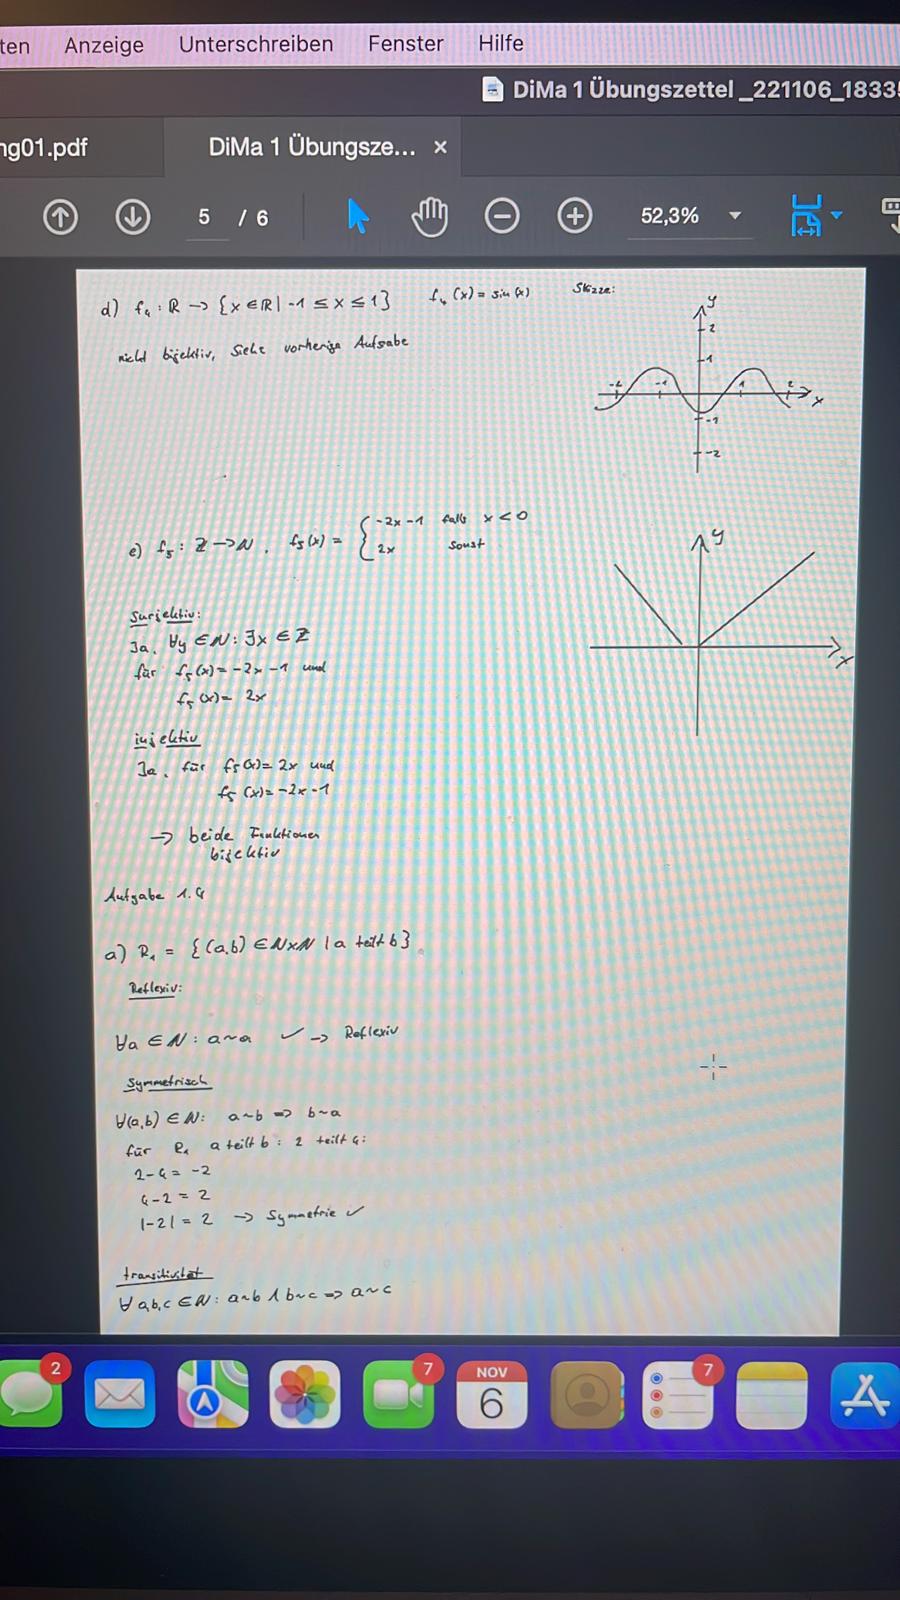 ten Anzeige Unterschreiben Fenster Hilfe
DiMa 1 Übungszettel _221106_1833
ng01.pdf DiMa 1 Übungsze... ×
5 / 6 52,3%
d) f₄ : ℝ → {x ∈ ℝ | -1 ≤ x ≤ 1} f₄(x) = sin(x) Skizze:
nicht bijektiv, siehe vorherige Aufgabe
y
2
1
-2 -1 1 2
x
-1
-2
e) f₅ : ℤ → ℕ, f₅(x) = { -2x -1 falls x < 0
2x sonst
y
x
Surjektiv:
Ja, ∀y ∈ ℕ : ∃x ∈ ℤ
für f₅(x) = -2x -1 und
f₅(x) = 2x
injektiv
Ja, für f₅(x) = 2x und
f₅(x) = -2x -1
→ beide Funktionen
bijektiv
Aufgabe 1.4
a) R₁ = {(a,b) ∈ ℕ×ℕ | a teilt b}
Reflexiv:
∀a ∈ ℕ : a~a ✓ → Reflexiv
Symmetrisch
∀(a,b) ∈ ℕ: a~b => b~a
für R₁ a teilt b : 2 teilt 4:
2-4 = -2
4-2 = 2
|-2| = 2 → Symmetrie ✓
transitivität
∀ a,b,c ∈ ℕ : a~b ∧ b~c => a~c
2
7
NOV
6
7